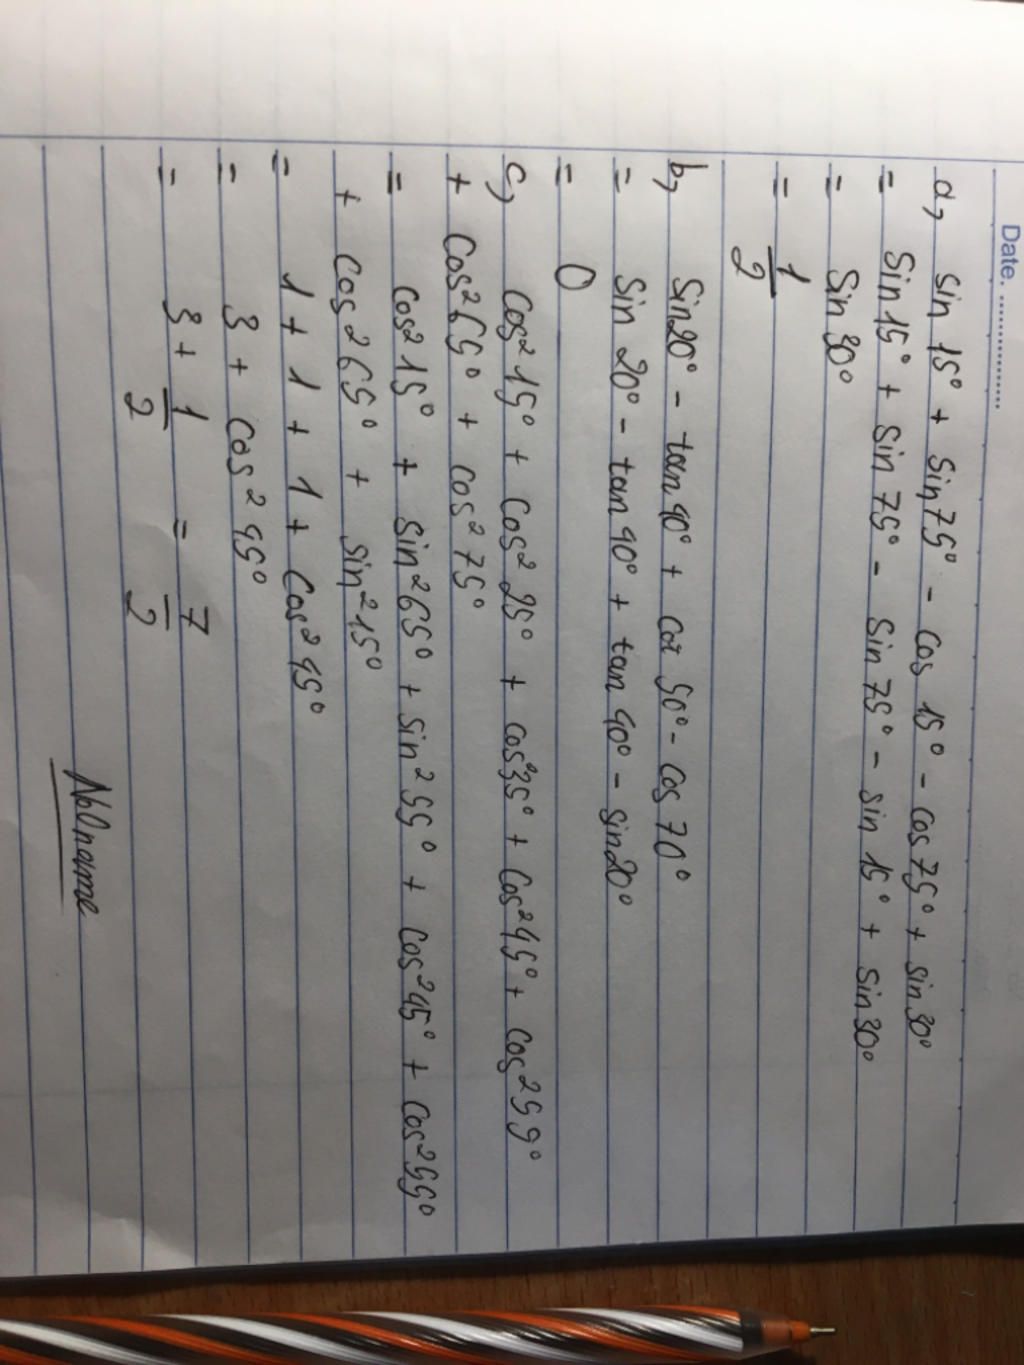 Date. ..............
a, sin 15° + sin 75° - cos 15° - cos 75° + sin 30°
= Sin 15° + sin 75° - sin 75° - sin 15° + sin 30°
= Sin 30°
= 1/2
b, Sin 20° - tan 40° + cot 50° - cos 70°
= Sin 20° - tan 40° + tan 40° - sin 20°
= 0
c, Cos² 15° + Cos² 25° + cos² 35° + Cos² 45° + cos² 55°
+ Cos² 65° + cos² 75°
= cos² 15° + sin² 65° + sin² 55° + cos² 45° + cos² 55°
+ cos² 65° + sin² 15°
= 1 + 1 + 1 + Cos² 45°
= 3 + cos² 45°
= 3 + 1/2 = 7/2
NoOname